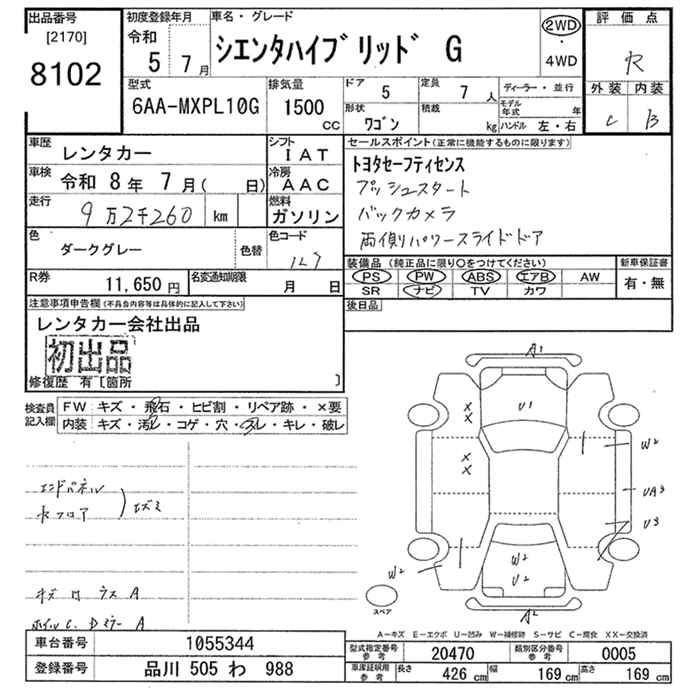 出品番号
[2170]
8102
初度登録年月
令和
5 7月
車名・グレード
シエンタハイブリッド G
2WD
・
4WD
評価点
R
型式
6AA-MXPL10G
排気量
1500
CC
ドア
5
定員
7人
形状
ワゴン
積載
kg
ディーラー・並行
モデル年式 年
ハンドル 左・右
外装 内装
C B
車歴
レンタカー
シフト
IAT
車検
令和 8年 7月( 日)
冷房
AAC
走行
9万2千260 km
燃料
ガソリン
色
ダークグレー
色替
色コード
1L7
R券
11,650円
名変通知期限
月 日
セールスポイント(正常に機能するものに限ります)
トヨタセーフティセンス
プッシュスタート
バックカメラ
両側パワースライドドア
装備品(純正品に限り○をつけてください)
PS PW ABS エアB AW
SR ナビ TV カワ
新車保証書
有・無
後日品
注意事項申告欄(不具合内容等は具体的に記入して下さい)
レンタカー会社出品
初出品
修復歴 有[箇所 ]
検査員
記入欄
FW キズ・飛石・ヒビ割・リペア跡・×要
内装 キズ・汚レ・コゲ・穴・スレ・キレ・破レ
エンドパネル
水フロア
エズミ
キズ
A
ホイルC、Dミラー A
A1
U1
×
×
×
×
W2
UA3
U3
W2
W2
U2
A2
スペア
A-キズ E-エクボ U-凹み W-補修跡 S-サビ C-腐食 XX-交換済
車台番号
1055344
登録番号
品川 505 わ 988
型式指定番号
参考
20470
類別区分番号
参考
0005
車庫証明用
参考
長さ
426 cm
幅
169 cm
高さ
169 cm